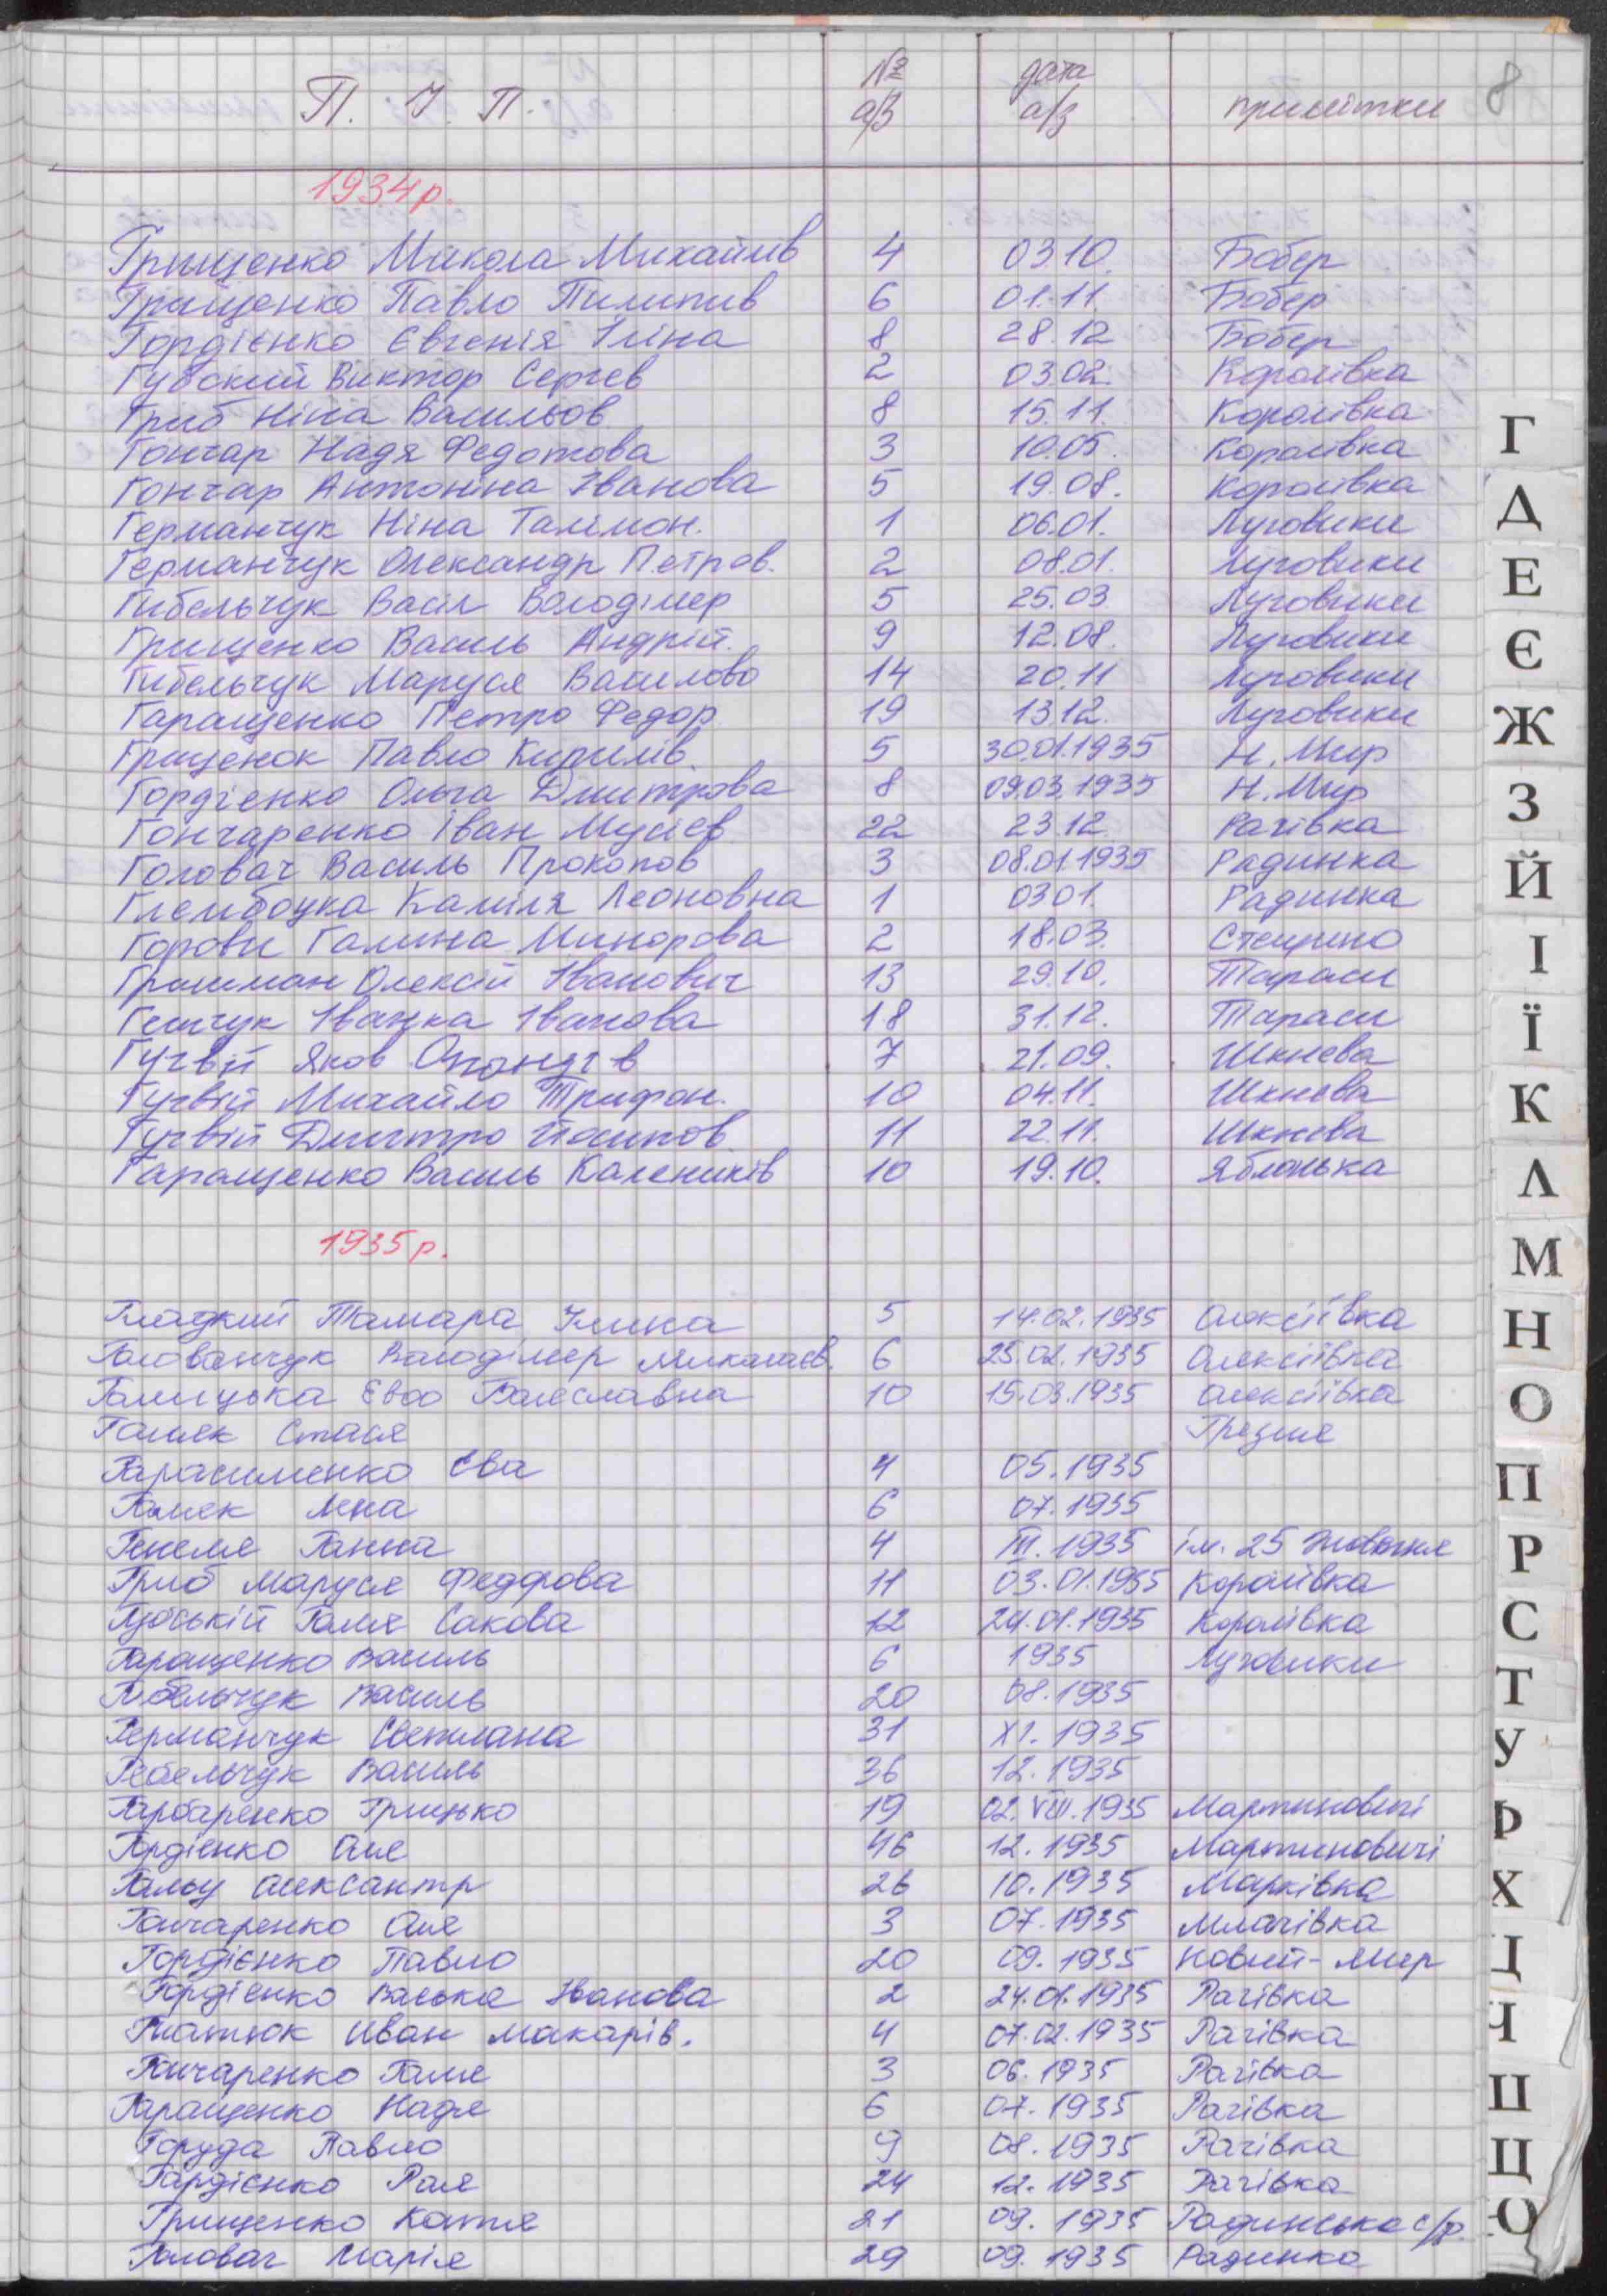 П. І. П. № а/з дата а/з примітки 8
1934 р.
Грищенко Микола Михайлів 4 03.10. Бобер
Грищенко Павло Пилипив 6 01.11. Бобер
Гордієнко Євгенія Ілліна 8 28.12 Бобер
Губский Виктор Сергев 2 03.02 Королівка
Гриб Ніна Васильов 8 15.11. Королівка
Гончар Надя Федотова 3 10.05. Королівка
Гончар Антоніна Іванова 5 19.08. Королівка
Германчук Ніна Талімон. 1 06.01. Луговики
Германчук Олександр Петров. 2 08.01. Луговики
Гибельчук Васіл Володімер 5 25.03 Луговики
Грищенко Василь Андрій. 9 12.08. Луговики
Гибельчук Маруся Василово 14 20.11 Луговики
Гаращенко Петро Федор. 19 13.12. Луговики
Грищенок Павло Кирилів. 5 30.01.1935 Н. Мир
Гордієнко Ольга Дмитрова 8 09.03.1935 Н. Мир
Гончаренко Іван Мусієв 22 23.12 Рагівка
Головач Василь Прокопов 3 08.01.1935 Радинка
Глембоцка Каміля Леоновна 1 03.01. Радинка
Горови Галина Минорова 2 18.03. Стещино
Гришман Олексій Іванович 13 29.10. Тараси
Іванка Іванова 18 31.12. Тараси
Гугвій Яков 7 21.09. Шкнева
Гугвій Михайло Трифон. 10 04.11. Шкнева
Гугвій Дмитро Йосипов 11 22.11. Шкнева
Гаращенко Василь Калеників 10 19.10. Яблонька
1935 р.
Гладкий Тамара 5 14.02.1935 Олексіївка
Голованчук Володімер Миколаєв. 6 25.02.1935 Олексіївка
Галицька Євво Болеславна 10 15.03.1935 Олексіївка
Галяк Стася Грезля
Гарасименко Єва 4 05.1935
Галяк Лена 6 07.1935
Ганна 4 III. 1935 ім. 25 Жовтня
Гриб Маруся Федорова 11 03.01.1935 Королівка
Губській Галя Сакова 12 24.01.1935 Королівка
Гаращенко Василь 6 1935 Луговики
Гобельчук Василь 20 08.1935
Германчук Светлана 31 XI. 1935
Гебельчук Василь 36 12.1935
Гарбаренко Грицько 19 02.VIII.1935 Мартиновичі
Гордієнко Оля 46 12.1935 Мартиновичі
Олександр 26 10.1935 Марківка
Гончаренко Оля 3 07.1935 Млачівка
Гордієнко Павло 20 09.1935 Новий-Мир
Гордієнко Васька Іванова 2 24.01.1935 Рагівка
Гнатюк Иван Макарів. 4 07.02.1935 Рагівка
Гончаренко Галя 3 06.1935 Рагівка
Гаращенко Надя 6 07.1935 Рагівка
Горуда Павло 9 08.1935 Рагівка
Гардієнко Рая 24 12.1935 Рагівка
Грищенко Катя 21 09.1935 Радинська с/р.
Головач Марія 29 09.1935 Радинка
Г
Д
Е
Є
Ж
З
Й
І
Ї
К
Л
М
Н
О
П
Р
С
Т
У
Ф
Х
Ц
Ч